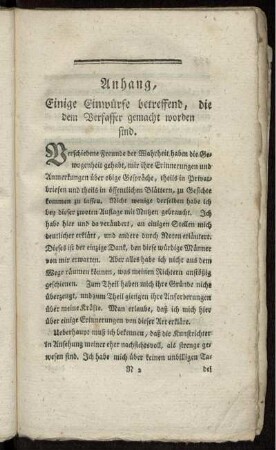 Anhang,
Einige Einwürfe betreffend, die
dem Verfasser gemacht worden
sind.
Verschiedene Freunde der Wahrheit haben die Ge-
wogenheit gehabt, mir ihre Erinnerungen und
Anmerkungen über obige Gespräche, theils in Privat-
briefen und theils in öffentlichen Blättern, zu Gesichte
kommen zu lassen. Nicht wenige derselben habe ich
bey dieser zwoten Auflage mit Nutzen gebraucht. Ich
habe hier und da verändert, an einigen Stellen mich
deutlicher erklärt, und andere durch Noten erläutert.
Dieses ist der einzige Dank, den diese würdige Männer
von mir erwarten. Aber alles habe ich nicht aus dem
Wege räumen können, was meinen Richtern anstößig
geschienen. Zum Theil haben mich ihre Gründe nicht
überzeugt, und zum Theil giengen ihre Anforderungen
über meine Kräfte. Man erlaube, daß ich mich hier
über einige Erinnerungen von dieser Art erkläre.
Ueberhaupt muß ich bekennen, daß die Kunstrichter
in Ansehung meiner eher nachsichtsvoll, als strenge ge-
wesen sind. Ich habe mich über keinen unbilligen Ta-
N 2 del